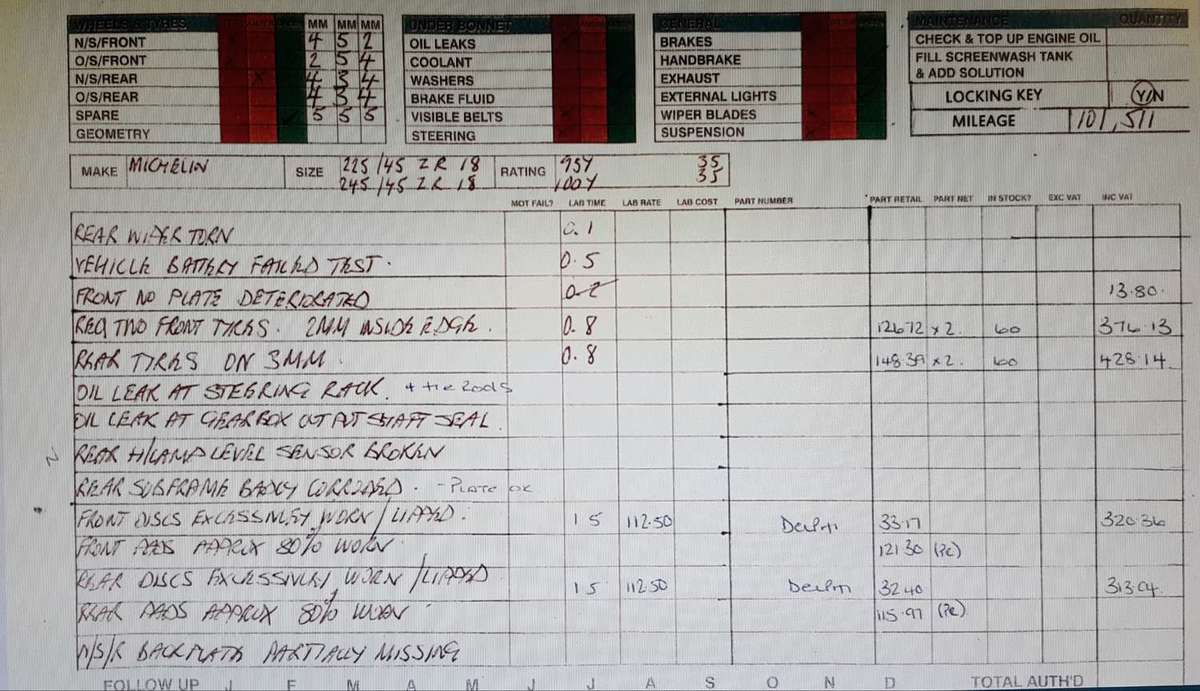 WHEELS & TYRES MM MM MM
N/S/FRONT 4 5 2
O/S/FRONT 2 5 4
N/S/REAR 4 3 4
O/S/REAR 4 3 4
SPARE 5 5 5
GEOMETRY
UNDER BONNET
OIL LEAKS
COOLANT
WASHERS
BRAKE FLUID
VISIBLE BELTS
STEERING
GENERAL
BRAKES
HANDBRAKE
EXHAUST
EXTERNAL LIGHTS
WIPER BLADES
SUSPENSION
MAINTENANCE QUANTITY
CHECK & TOP UP ENGINE OIL
FILL SCREENWASH TANK
& ADD SOLUTION
LOCKING KEY Y/N
MILEAGE 101,511
MAKE MICHELIN SIZE 225/45 ZR 18 RATING 95Y 35
245/45 ZR 18 100Y 35
MOT FAIL? LAB TIME LAB RATE LAB COST PART NUMBER PART RETAIL PART NET IN STOCK? EXC VAT INC VAT
REAR WIPER TORN 0.1
VEHICLE BATTERY FAILED TEST. 0.5
FRONT NO PLATE DETERIORATED 0.2 13.80.
REQ TWO FRONT TYRES. 2MM INSIDE EDGE. 0.8 126.72 x 2. 60 376.13
REAR TYRES ON 3MM. 0.8 148.39 x 2. 100 428.14
OIL LEAK AT STEERING RACK. + tie Rods
OIL LEAK AT GEARBOX OUTPUT SHAFT SEAL.
REAR H/LAMP LEVEL SENSOR BROKEN
REAR SUBFRAME BADLY CORRODED. - Plate ok
FRONT DISCS EXCESSIVLEY WORN / LIPPED. 1 5 112.50 Delphi 33.17 320.36
FRONT PADS APPROX 80% WORN. 121 30 (Pc)
REAR DISCS EXCESSIVLEY WORN / LIPPED 1 5 112.50 Delphi 32 40 313.04.
REAR PADS APPROX 80% WORN. 115.97 (Pc)
N/S/R BACKPLATE PARTIALLY MISSING
FOLLOW UP J F M A M J J A S O N D TOTAL AUTH'D